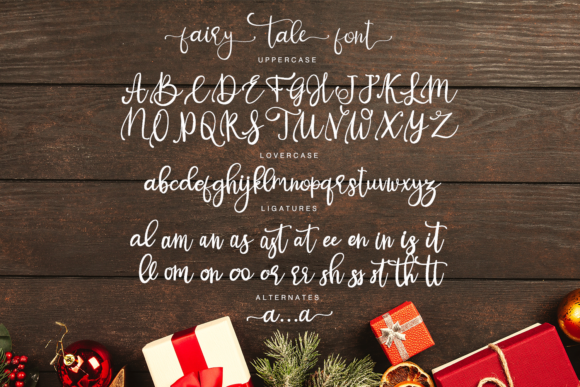 fairy tale font
UPPERCASE
A B C D E F G H I J K L M
N O P Q R S T U V W X Y Z
LOVERCASE
abcdefghijklmnopqrstuvwxyz
LIGATURES
al am an as ast at ee en in is it
le om on oo or rr sh ss st th tt
ALTERNATES
a...a